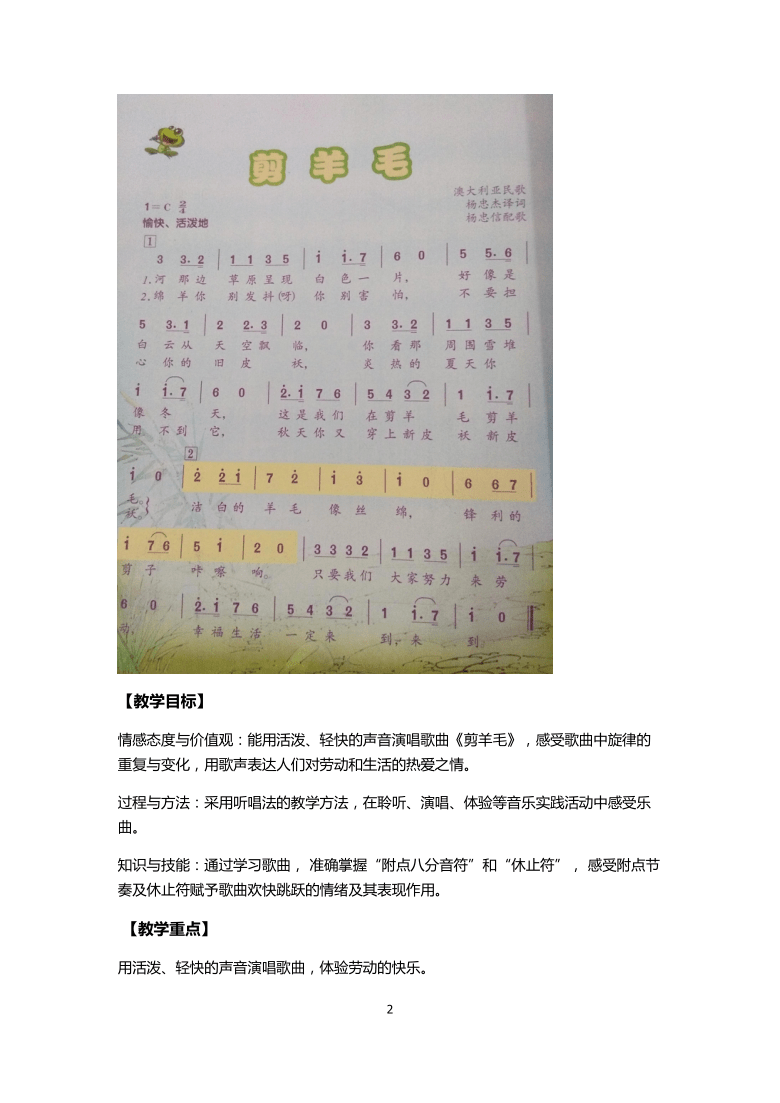 剪羊毛
澳大利亚民歌
1=C 2/4
杨忠杰译词
愉快、活泼地
杨忠信配歌
1
3 3.2 | 1 1 3 5 | i i.7 | 6 0 | 5 5.6 |
1.河 那边 草原呈现 白 色一 片, 好 像是
2.绵 羊你 别发抖(呀) 你 别害 怕, 不 要担
5 3.1 | 2 2.3 | 2 0 | 3 3.2 | 1 1 3 5 |
白 云从 天 空飘 临, 你 看那 周围雪堆
心 你的 旧 皮 袄, 炎 热的 夏天你
i i.7 | 6 0 | 2.i 7 6 | 5 4 3 2 | 1 i.7 |
像 冬 天, 这是我们 在剪羊 毛 剪羊
用 不到 它, 秋天你又 穿上新皮 袄 新皮
2
i 0 | 2 2 i | 7 2 | i 3 | i 0 | 6 6 7 |
毛。 洁 白的 羊 毛 像 丝 绵, 锋 利的
袄。
i 7 6 | 5 i | 2 0 | 3 3 3 2 | 1 1 3 5 | i i.7 |
剪 子 咔 嚓 响。 只要我们 大家努力 来 劳
6 0 | 2.i 7 6 | 5 4 3 2 | 1 i.7 | i 0
动, 幸福生活 一定来 到,来 到。
【教学目标】
情感态度与价值观：能用活泼、轻快的声音演唱歌曲《剪羊毛》，感受歌曲中旋律的
重复与变化，用歌声表达人们对劳动和生活的热爱之情。
过程与方法：采用听唱法的教学方法，在聆听、演唱、体验等音乐实践活动中感受乐
曲。
知识与技能：通过学习歌曲， 准确掌握“附点八分音符”和“休止符”， 感受附点节
奏及休止符赋予歌曲欢快跳跃的情绪及其表现作用。
【教学重点】
用活泼、轻快的声音演唱歌曲，体验劳动的快乐。
2